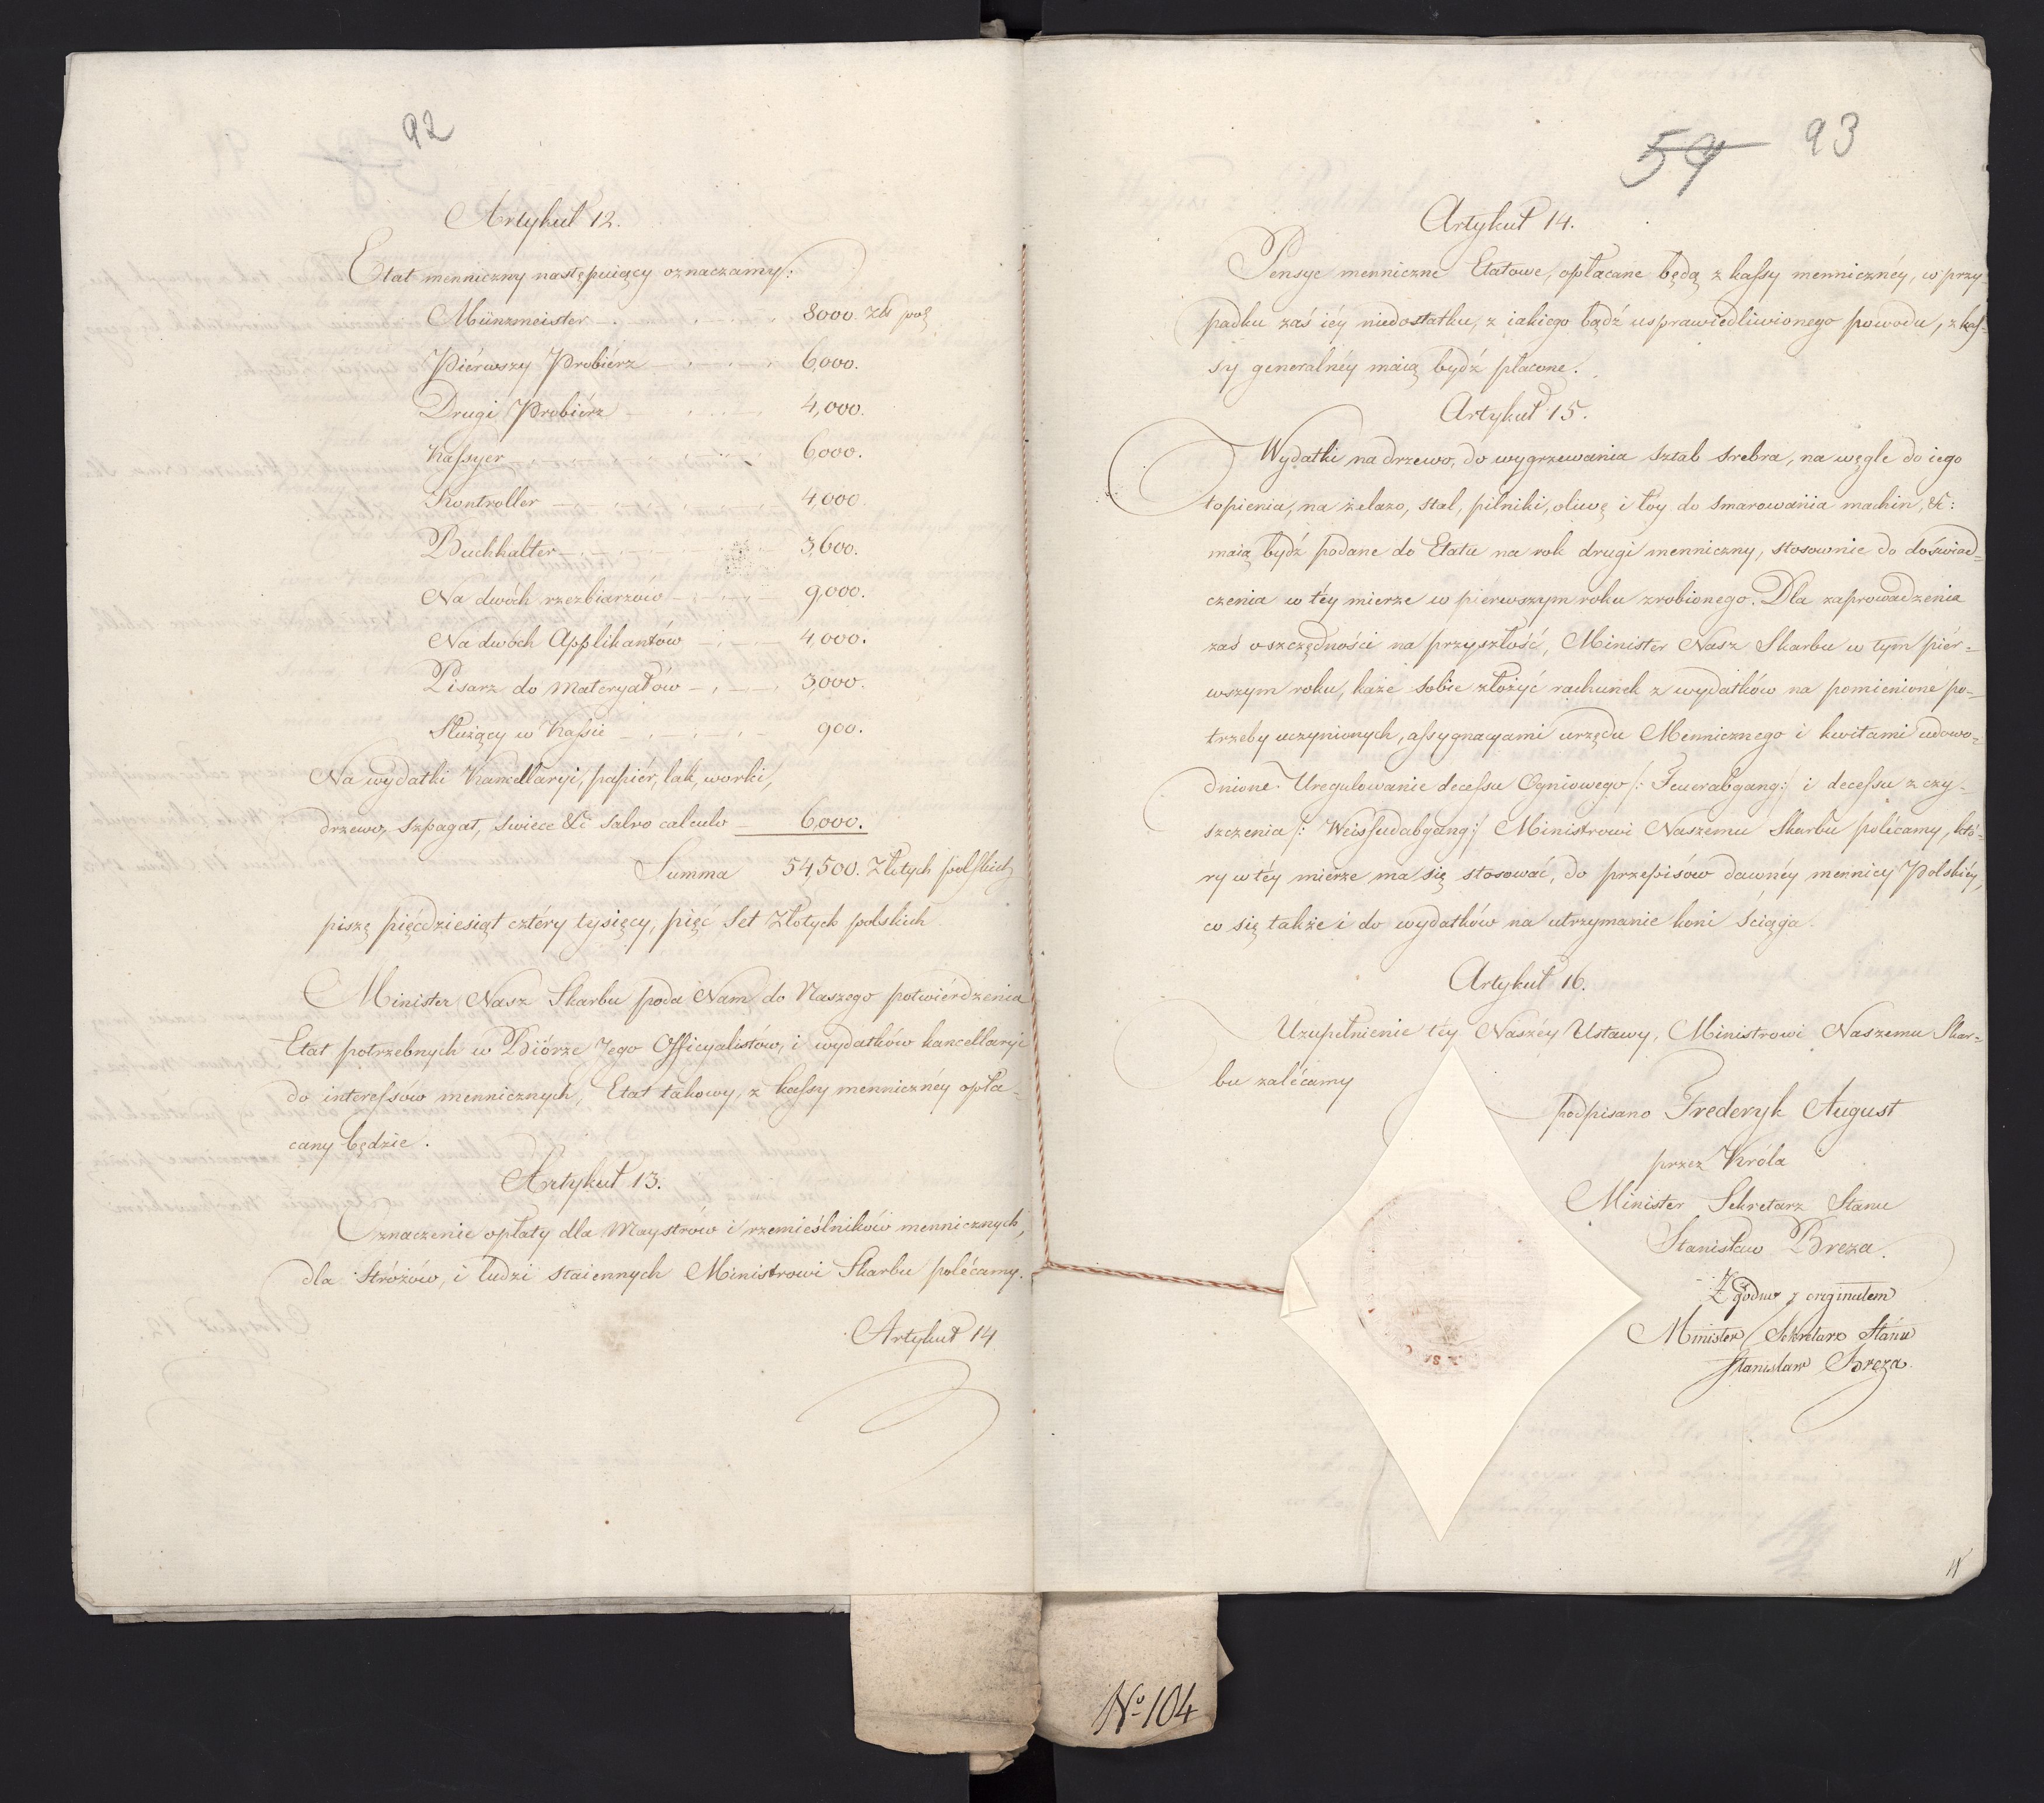 92
Artykuł 12.
Etat menniczny następuiący oznaczamy:
Münzmeister 8000. Złł pol
Piérwszy Probiérz 6,000.
Drugi Probiérz 4,000.
Kassyer 6,000.
Kontroller 4,000
Buchhalter 3,600.
Na dwóch rzezbiarzów 9,000.
Na dwóch Applikantów 4,000.
Pisarz do materyałów 3,000.
Służący w Kassie 900.
Na wydatki Kancellaryi, papiér, lak, worki,
drzewo, szpagat, swiece &c salvo calculo 6,000.
Summa 54,500. Złotych polskich
piszę pięćdziesiąt cztéry tysięcy, pięć Set Złotych polskich
Minister Nasz Skarbu poda Nam do Naszego potwiérdzenia
Etat potrzebnych w Biórze Jego Officyalistów, i wydatków kancellaryi
do interessów mennicznych, Etat takowy, z kassy mennicznéy opła-
cany będzie.
Artykuł 13.
Oznaczenie opłaty dla Maystrów i rzemieślników mennicznych,
dla Stróżów, i ludzi staiennych Ministrowi Skarbu polécamy.
Artykuł 14
59 93
Artykuł 14.
Pensye menniczne Etatowe, opłacane będą z kassy mennicznéy, w przy
padku zaś iéy niedostatku, z iakiego bądź usprawiedliwionego powodu, z kas-
sy generalnéy maią bydź płacone.
Artykuł 15.
Wydatki na drzewo, do wygrzewania sztab srebra, na węgle do iego
topienia, na żelazo, stal, pilniki, oliwę i łóy do smarowania machin, &c:
maią bydź podane do Etatu na rok drugi menniczny, stosownie do doświad-
czenia w téy mierze w pierwszym roku zrobionego. Dla zaprowadzenia
zaś oszczędności na przyszłość, Minister Nasz Skarbu w tym piér-
wszym roku, każe sobie złożyć rachunek z wydatków na pomienione po-
trzeby uczynionych, assygnacyami urzędu Mennicznego i kwitami udowo-
dnione. Uregulowanie decessu Ogniowego /: Feuerabgang :/ i decessu z czy-
szczenia /: Weissudabgang :/ Ministrowi Naszemu Skarbu polécamy, któ-
ry w téy mierze ma się stosować, do przepisów dawnéy mennicy Polskiéy,
co się także i do wydatków na utrzymanie koni ściąga.
Artykuł 16.
Uzupełnienie téy Naszéy Ustawy, Ministrowi Naszemu Skar-
bu zalécamy
podpisano Frederyk August
przez Króla
Minister Sekretarz Stanu
Stanisław Breza.
Zgodno z oryginałem
Minister Sekretarz Stanu
Stanisław Breza.
N° 104